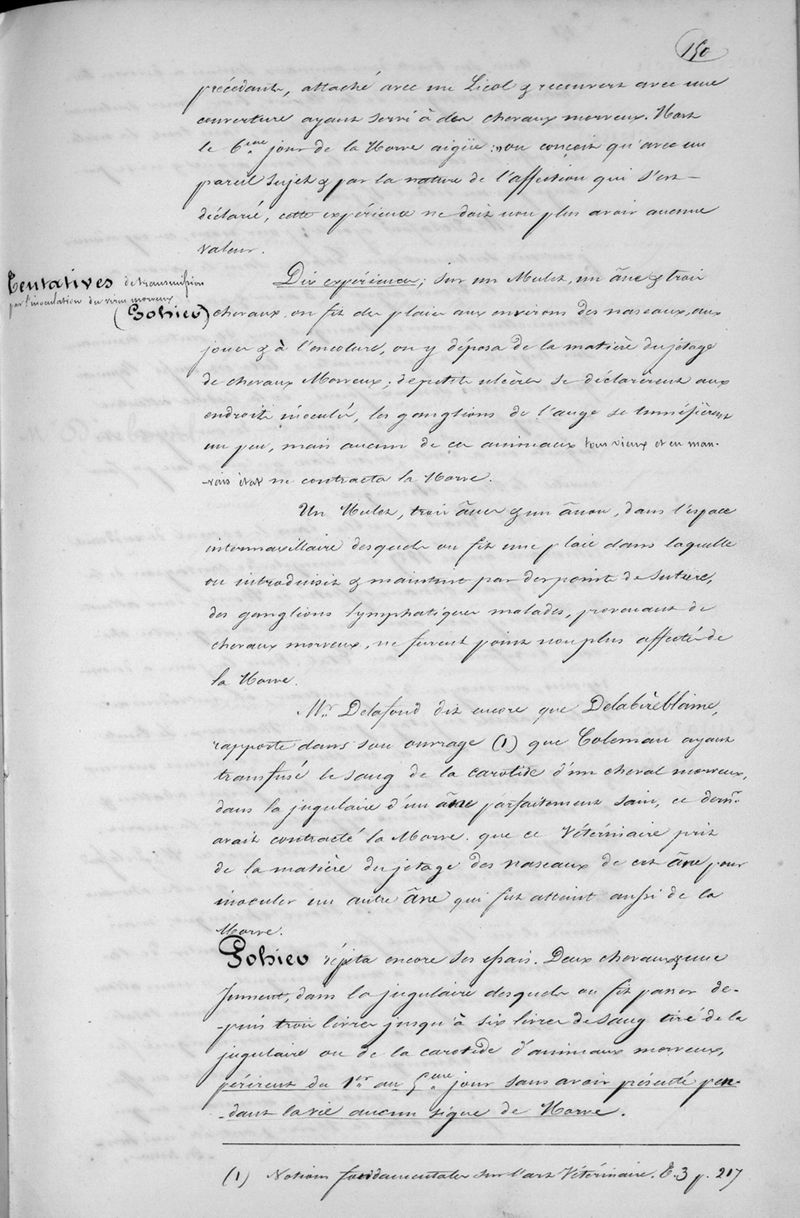 150
précédents, attaché avec un Licol & recouvert avec une
couverture ayant servi à des chevaux morveux. Mort
le 6ème jour de la Morve aigüe: on conçoit qu'avec un
pareil sujet & par la nature de l'affection qui s'est
déclarée, cette expérience ne doit non plus avoir aucune
valeur.
Tentatives de transmission
par l'inoculation du virus morveux
(Gohier)
Dix expériences; sur un Mulet, un âne & trois
chevaux on fit des plaies aux environs des naseaux, aux
joues & à l'encolure, on y déposa de la matière du jetage
de chevaux Morveux; de petits ulcères se déclarèrent aux
endroits inoculés, les ganglions de l'auge se tuméfièrent
un peu, mais aucun de ces animaux tous vieux et en mau-
-vais état ne contracta la Morve.
Un Mulet, trois ânes & un ânon, dans l'espace
intermaxillaire desquels on fit une plaie dans laquelle
on introduisit & maintint par des points de suture,
des ganglions lymphatiques malades, provenant de
chevaux morveux, ne furent point non plus affectés de
la Morve.
Mr. Delafond dit encore que Delabèreblaine,
rapporte dans son ouvrage (1) que Coleman ayant
transfusé le sang de la carotide d'un cheval morveux,
dans la jugulaire d'un âne parfaitement sain, ce dernr.
avait contracté la Morve. que ce Vétérinaire prit
de la matière du jetage des naseaux de cet âne pour
inoculer un autre âne qui fut atteint aussi de la
Morve.
Gohier répéta encore ses essais. Deux chevaux & une
Jument, dans la jugulaire desquels on fit passer de-
-puis trois livres jusqu'à six livres de sang tiré de la
jugulaire ou de la carotide d'animaux morveux,
périrent du 1er au 5ème jour sans avoir présenté pen-
-dant la vie aucun signe de Morve.
(1) Notions fondamentales sur l'art Vétérinaire. T. 3 p. 217